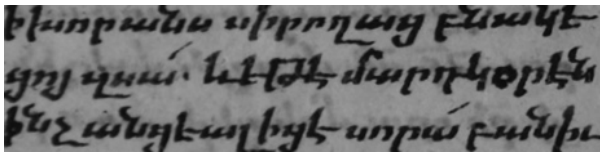 իխորանս սիրողաց բնակե
ցոյ զսա՛· և եթէ մարդկօրէն
ինչ անցեալ իցէ սորա՛ բանիւ